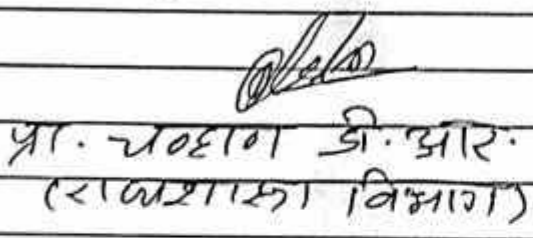 प्रा. चव्हाण डी. आर.
(राज्यशास्त्र विभाग)